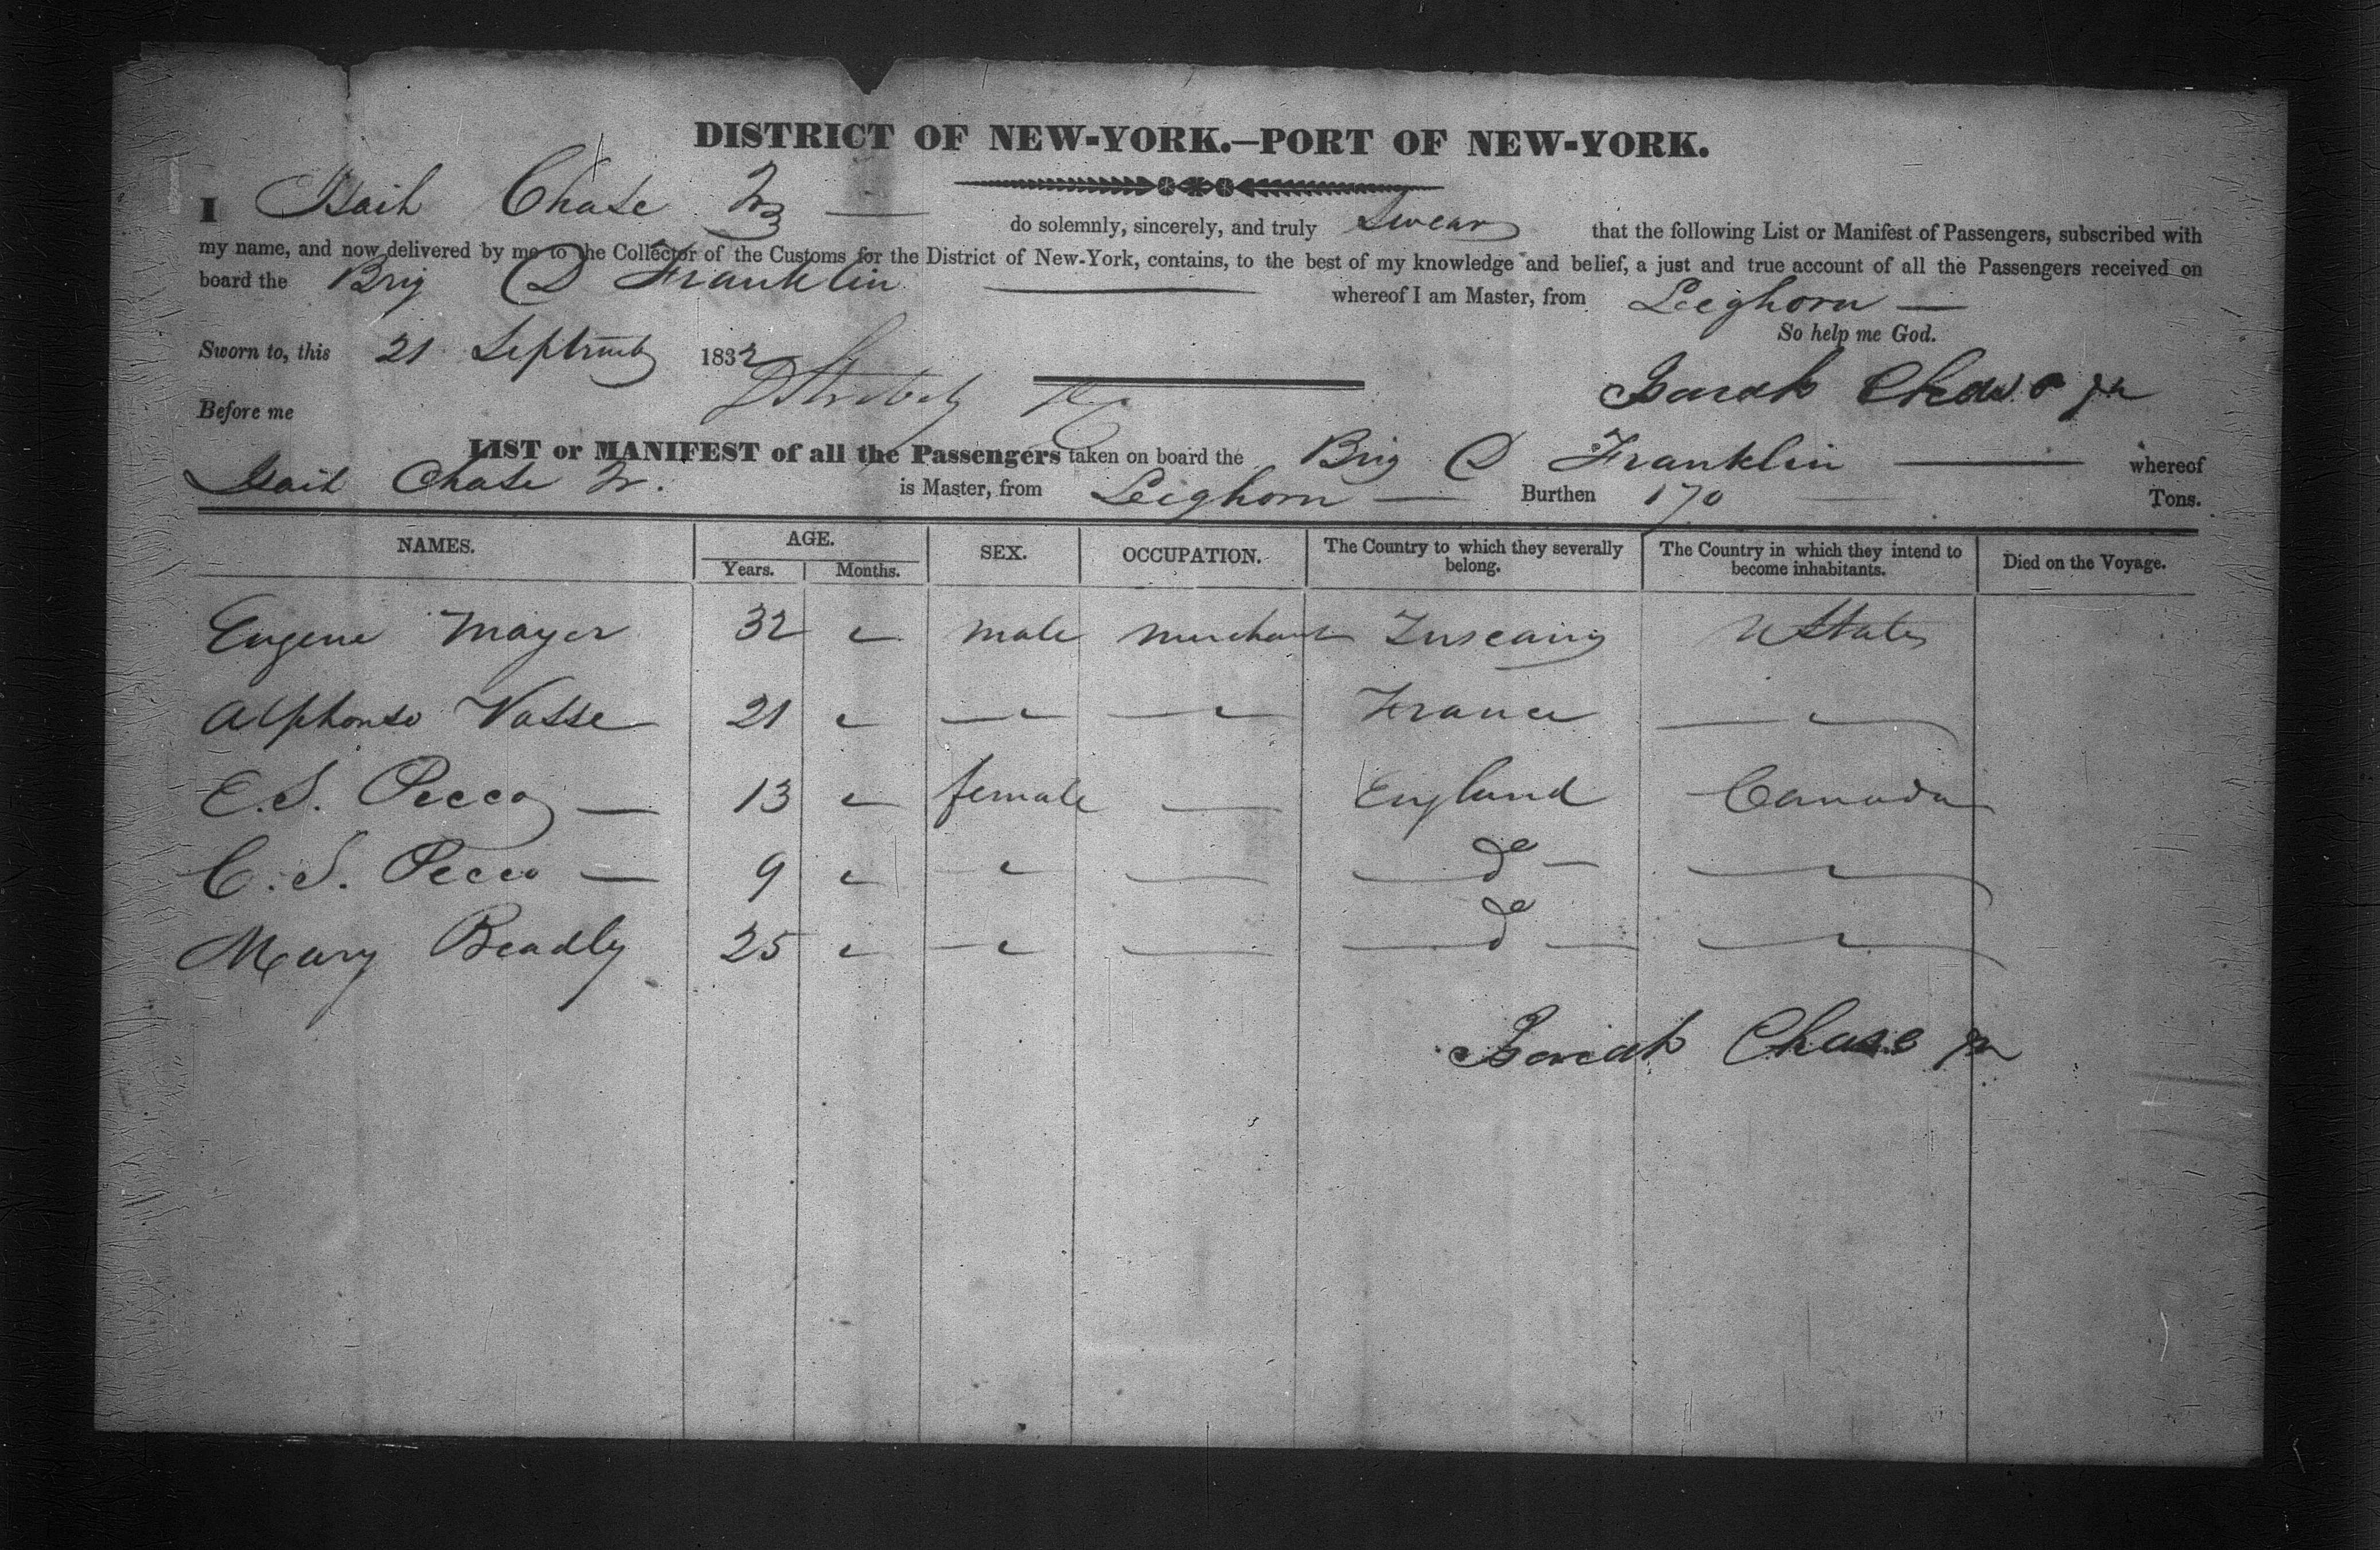 DISTRICT OF NEW-YORK.—PORT OF NEW-YORK.
I Isaih Chase Jr — do solemnly, sincerely, and truly Swear that the following List or Manifest of Passengers, subscribed with
my name, and now delivered by me to the Collector of the Customs for the District of New-York, contains, to the best of my knowledge and belief, a just and true account of all the Passengers received on
board the Brig D Franklin whereof I am Master, from Leeghorn —
So help me God.
Sworn to, this 21 September 1832
Isaiah Chase Jr
Before me
LIST or MANIFEST of all the Passengers taken on board the Brig D Franklin — whereof
Isaih Chase Jr. is Master, from Leighorn — Burthen 170 Tons.
NAMES. AGE. SEX. OCCUPATION. The Country to which they severally belong. The Country in which they intend to become inhabitants. Died on the Voyage.
Years. Months.
Eugene Mayer 32 " male merchant Tuscany U States
Alphonso Vasse 21 " — " — — " — France — " —
E. S. Pecco — 13 " female — England Canada
C. S. Pecco — 9 " " — — do — — " —
Mary Beadly 25 " — " — — do — — " —
Isaiah Chase Jr